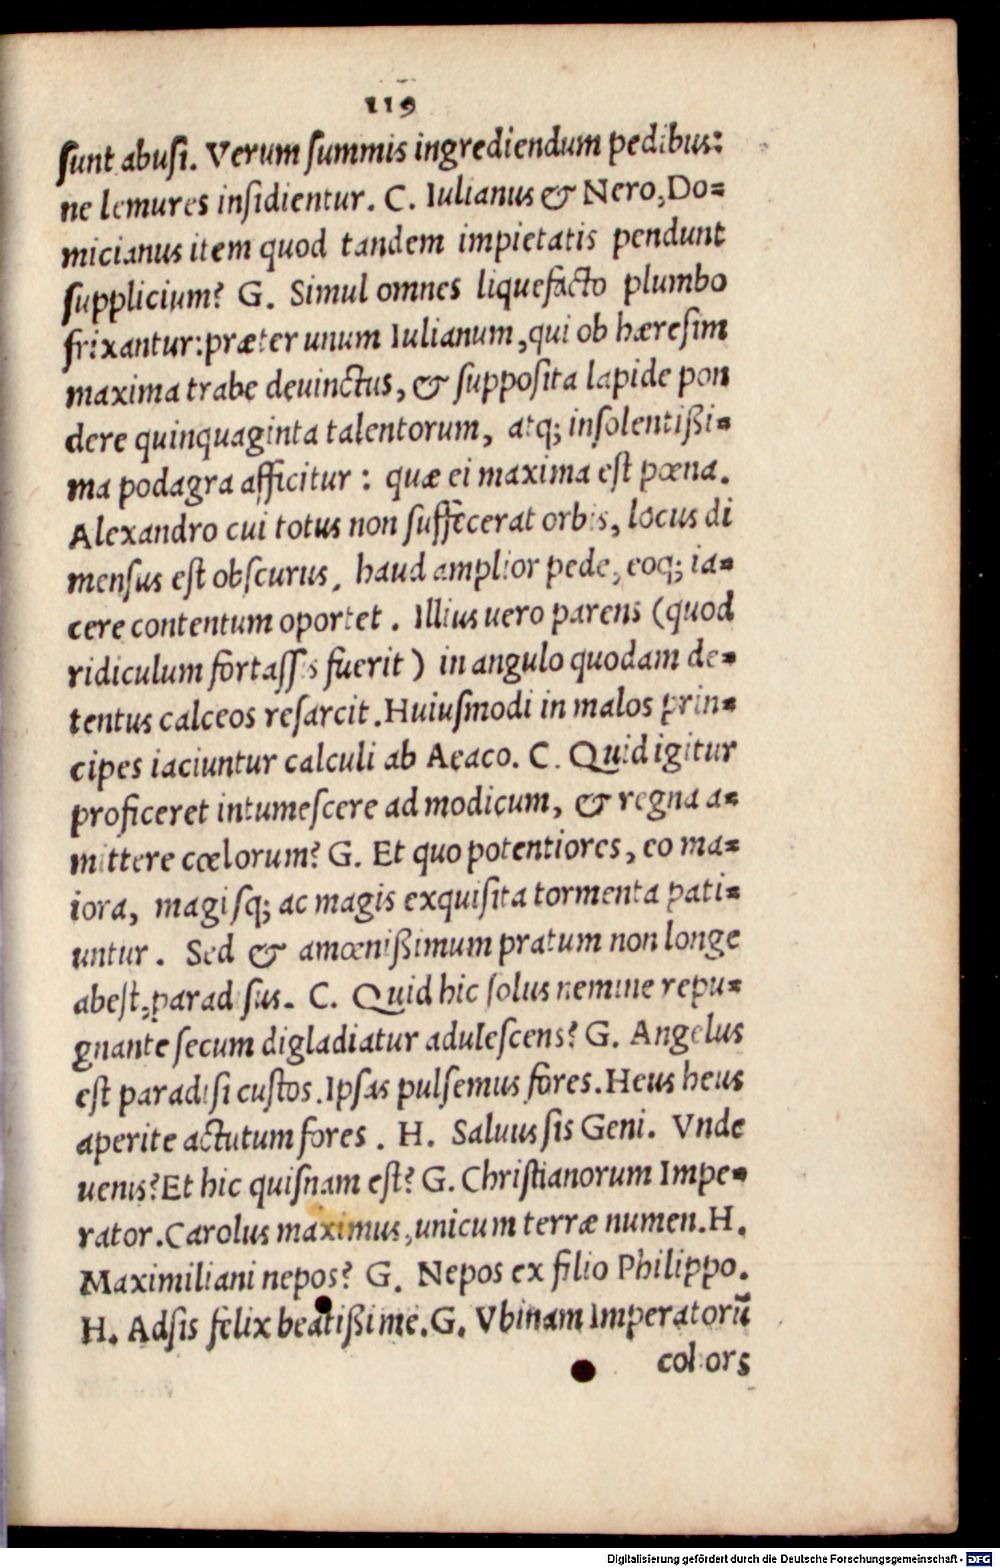 119
sunt abusi. Verum summis ingrediendum pedibus:
ne lemures insidientur. C. Iulianus & Nero, Do=
micianus item quod tandem impietatis pendunt
supplicium? G. Simul omnes liquefacto plumbo
frixantur: præter unum Iulianum, qui ob hæresim
maxima trabe deuinctus, & supposita lapide pon
dere quinquaginta talentorum, atq; insolentißi=
ma podagra afficitur: quæ ei maxima est pœna.
Alexandro cui totus non suffecerat orbis, locus di
mensus est obscurus, haud amplior pede, eoq; ia=
cere contentum oportet. Illius uero parens (quod
ridiculum fortassis fuerit) in angulo quodam de=
tentus calceos resarcit. Huiusmodi in malos prin=
cipes iaciuntur calculi ab Aeaco. C. Quid igitur
proficeret intumescere ad modicum, & regna a=
mittere cœlorum? G. Et quo potentiores, eo ma=
iora, magisq; ac magis exquisita tormenta pati=
untur. Sed & amœnißimum pratum non longe
abest, paradisus. C. Quid hic solus nemine repu=
gnante secum digladiatur adulescens? G. Angelus
est paradisi custos. Ipsas pulsemus fores. Heus heus
aperite actutum fores. H. Saluus sis Geni. Vnde
uenis? Et hic quisnam est? G. Christianorum Impe=
rator. Carolus maximus, unicum terræ numen. H.
Maximiliani nepos? G. Nepos ex filio Philippo.
H. Adsis felix beatißime. G. Vbinam Imperatorū
cohors
Digitalisierung gefördert durch die Deutsche Forschungsgemeinschaft - DFG